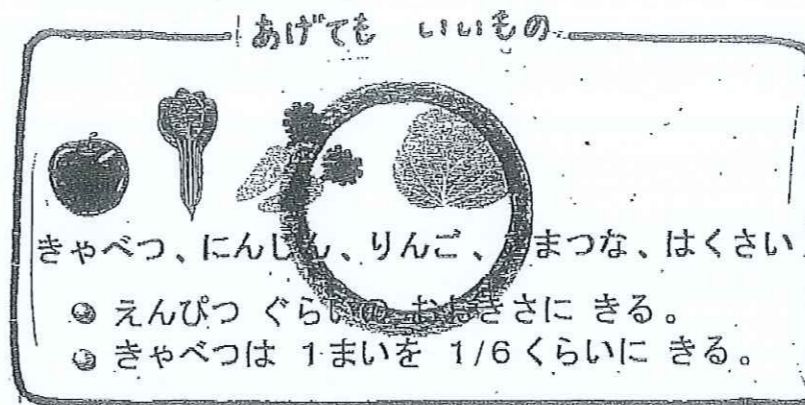 あげても いいもの
きゃべつ、にんじん、りんご、まつな、はくさい
えんぴつ ぐらいの おおきさに きる。
きゃべつは 1まいを 1/6くらいに きる。